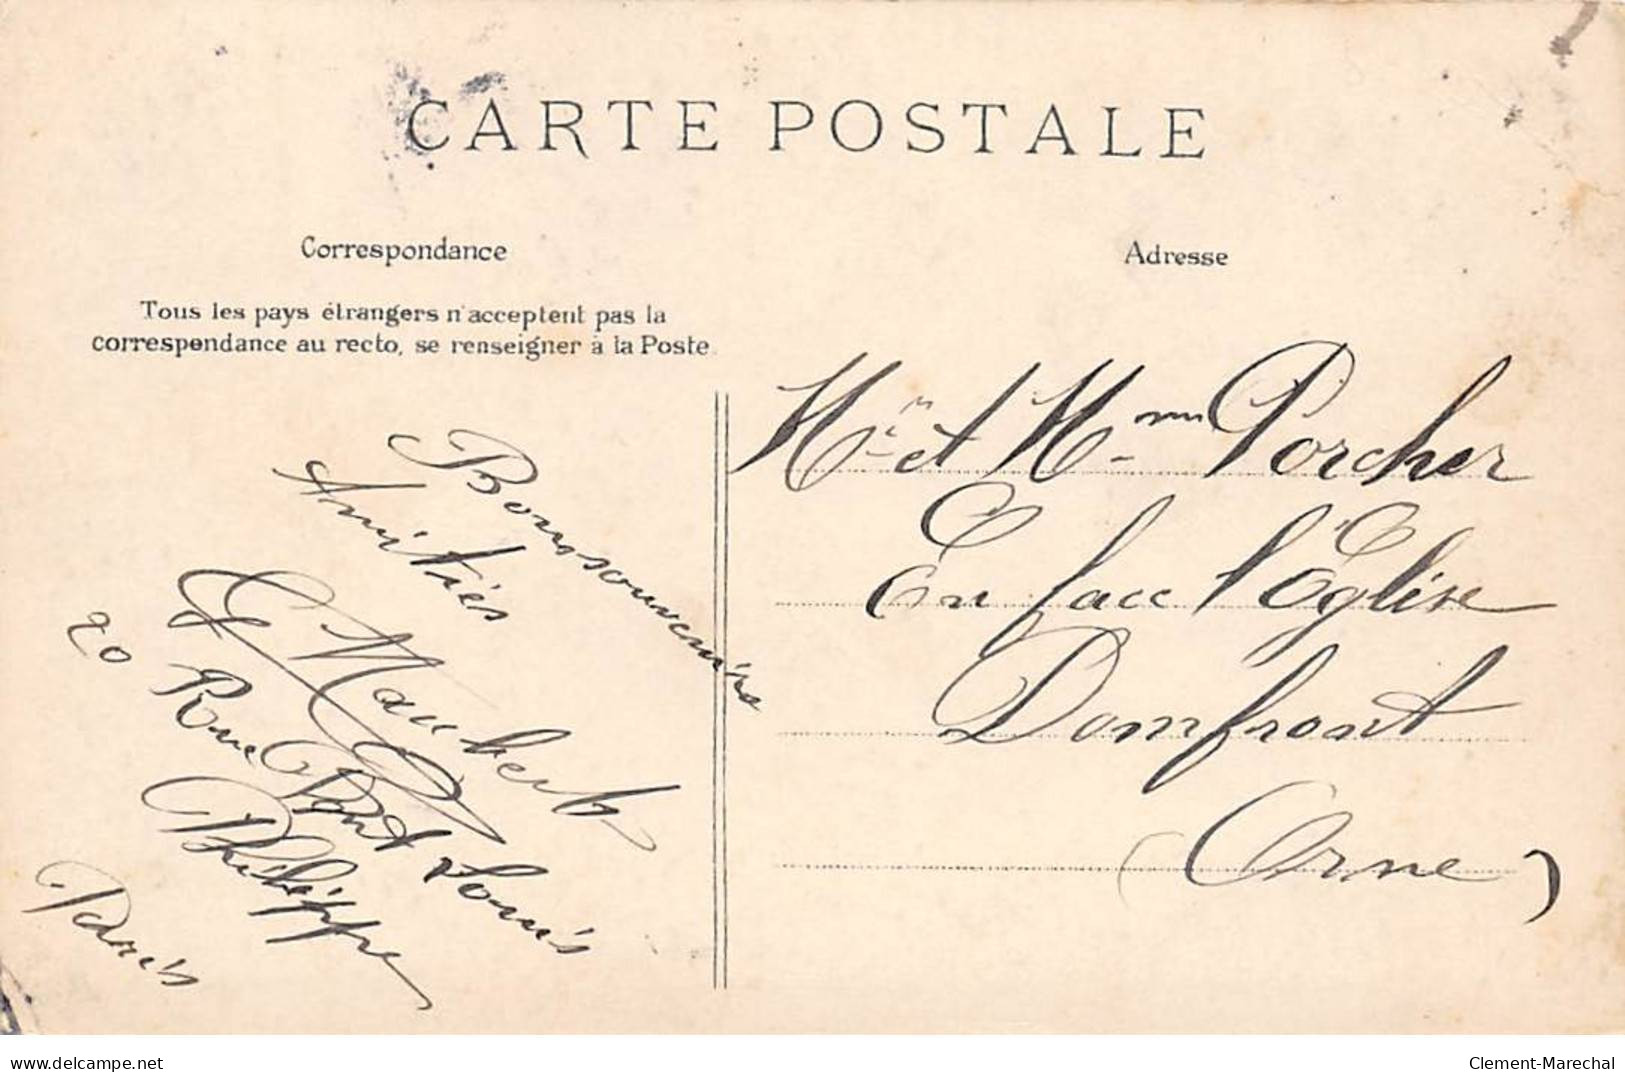 CARTE POSTALE
Correspondance
Tous les pays étrangers n'acceptent pas la
correspondance au recto, se renseigner à la Poste.
Bons souvenirs
Amitiés
G Maubert
20 Rue Pont Louis
Philippe
Paris
Adresse
Mr et Mme Porcher
En face l'Église
Domfront
(Orne)
delcampe.net
Clement-Marechal